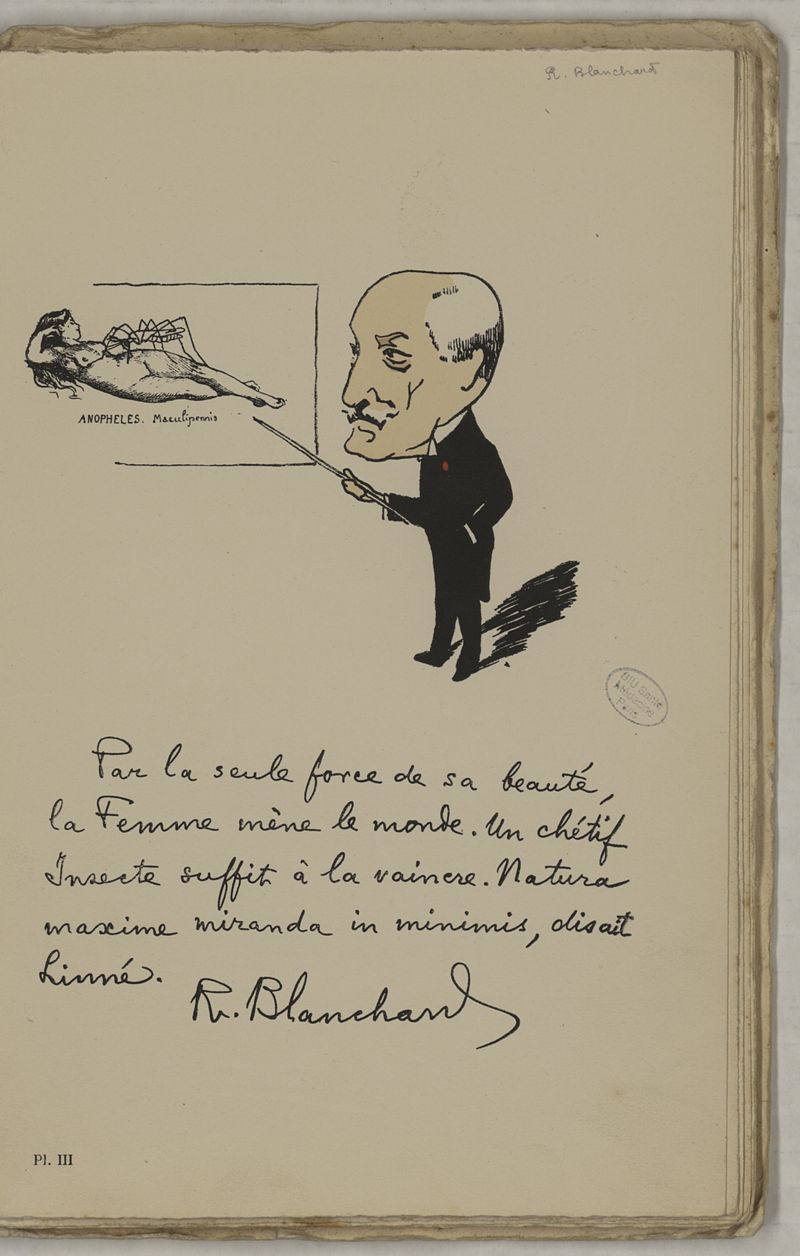 R. Blanchard
ANOPHELES. Maculipennis
BIU Santé
Médecine
Paris
Par la seule force de sa beauté,
la Femme mène le monde. Un chétif
Insecte suffit à la vaincre. Natura
maxime miranda in minimis, disait
Linné.
R. Blanchard
Pl. III